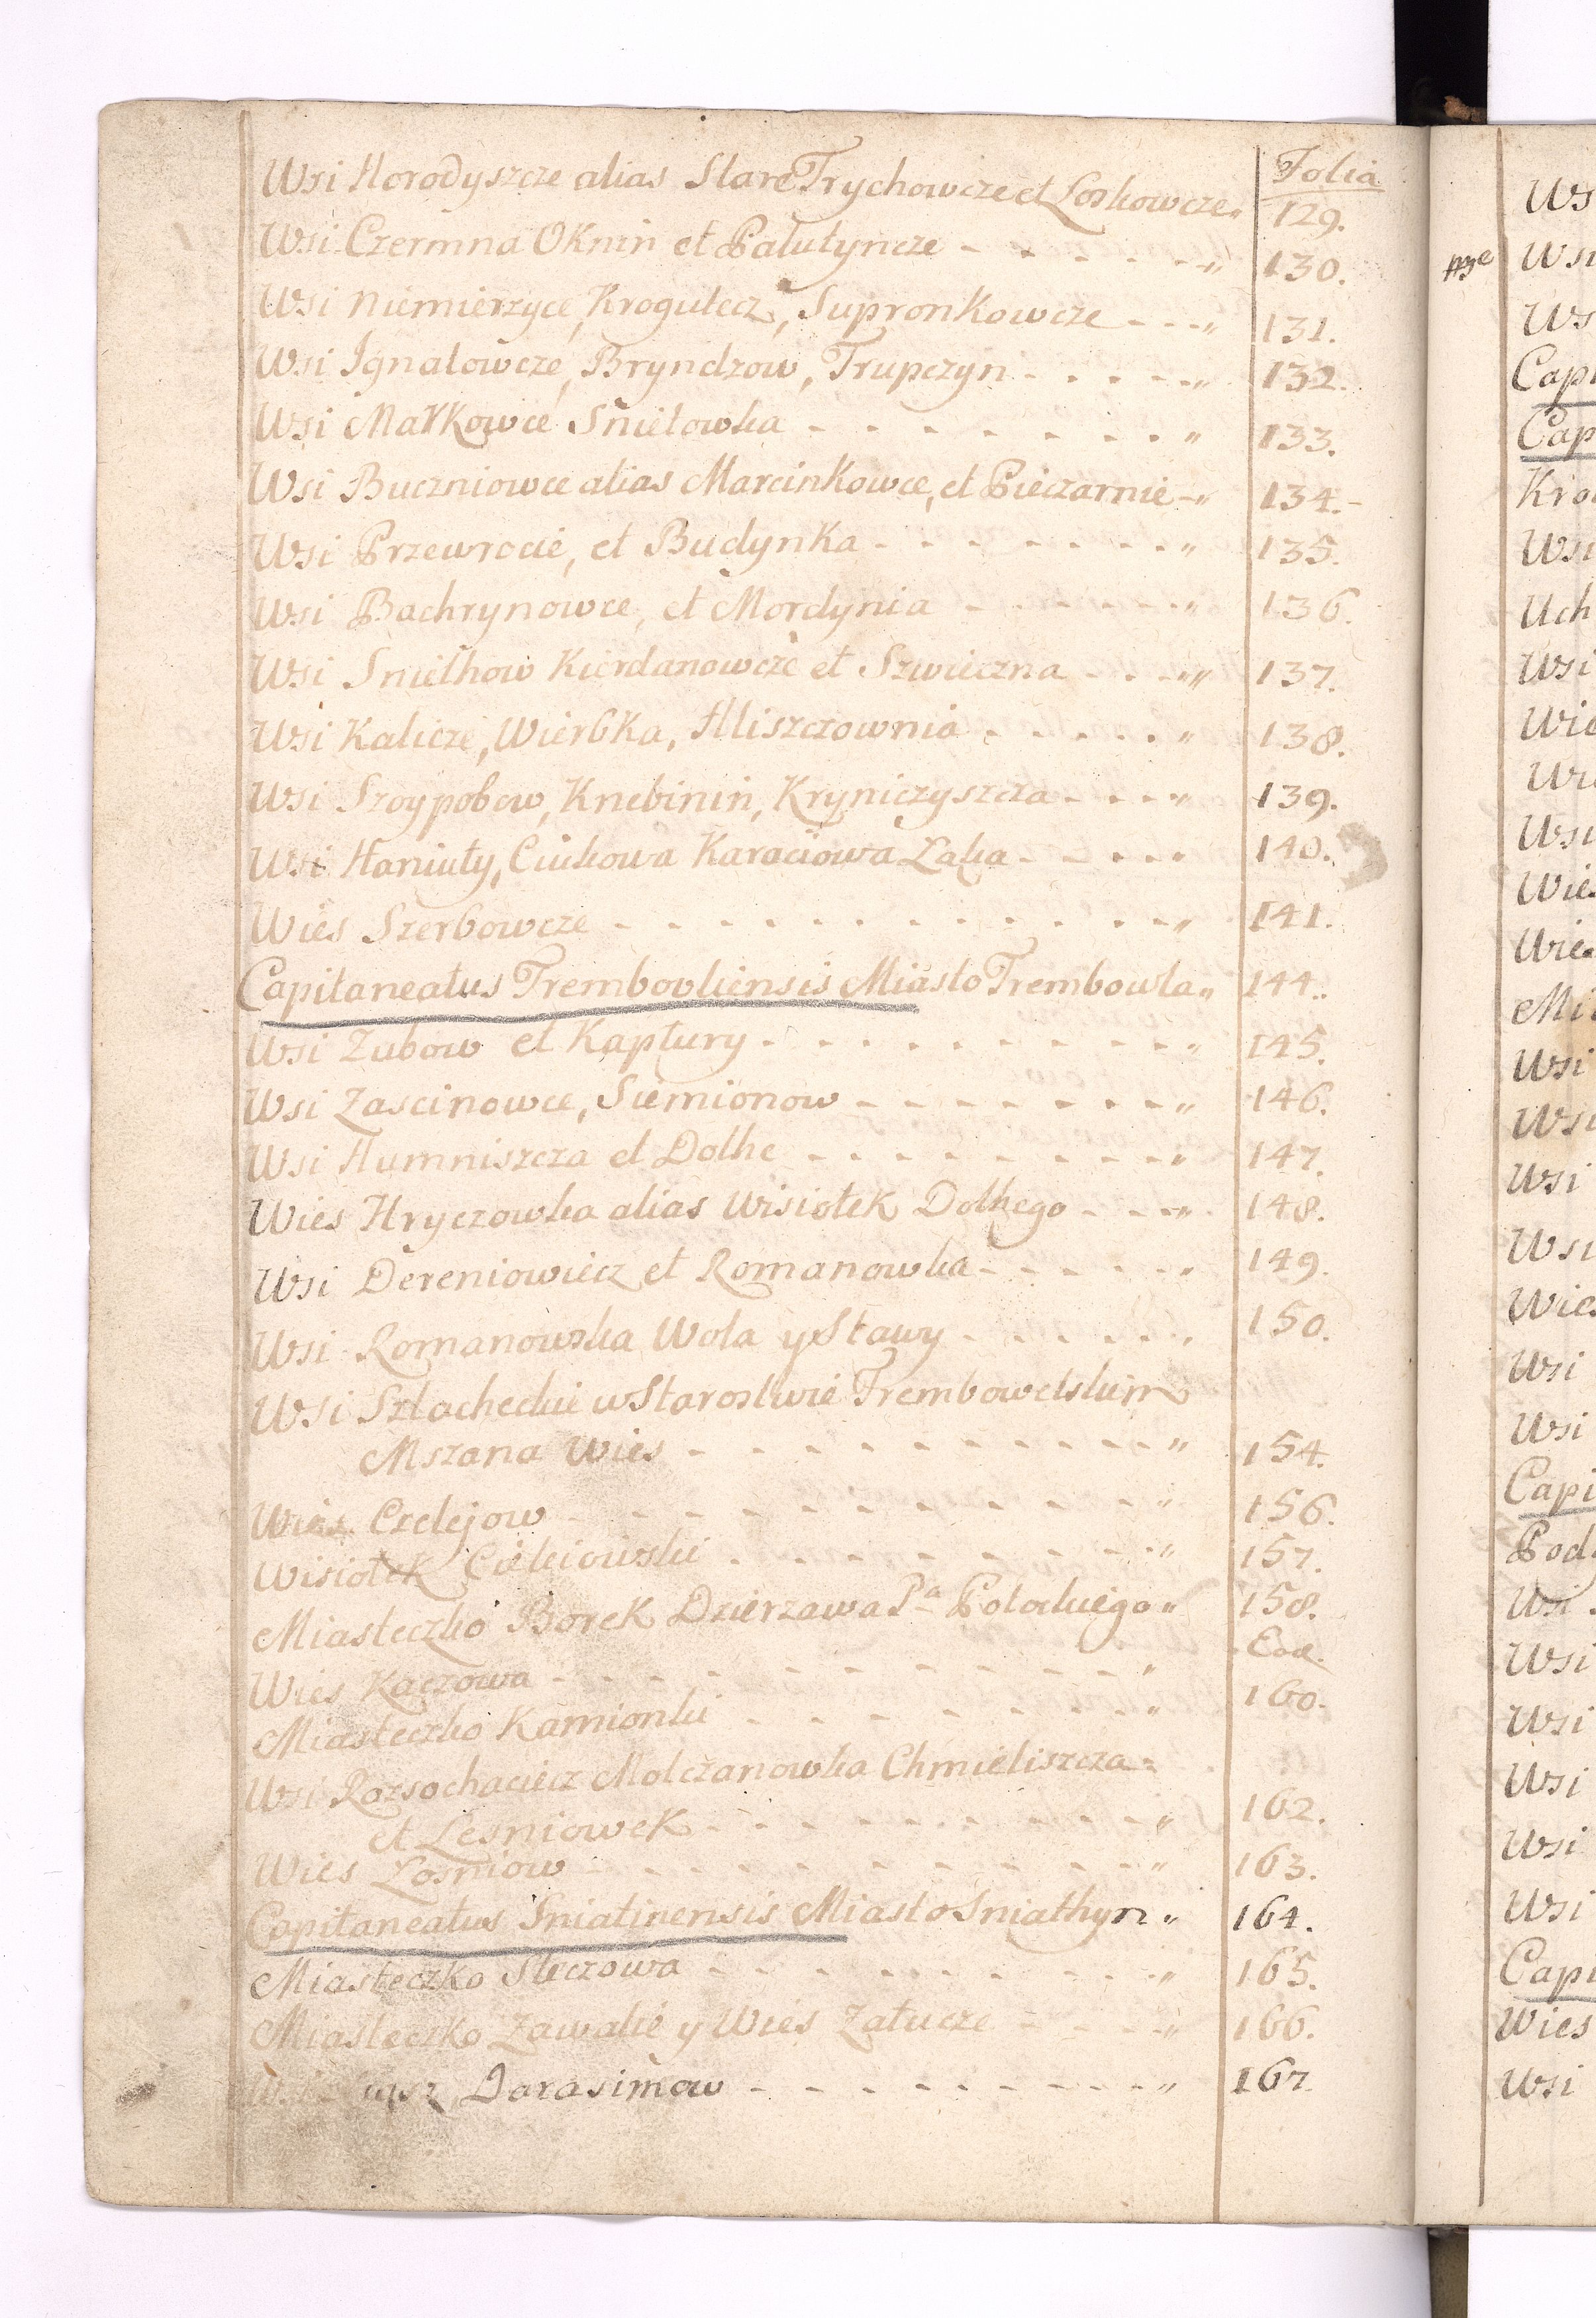 Folia
Wsi Horodyszcze alias Stare Trychowcze et Loskowcze 129.
Wsi Czermna Oknin et Palutyncze 130.
Wsi Niemierzyce, Krogulecz, Supronkowcze 131.
Wsi Ignatowcze, Bryndzow, Trupczyn 132.
Wsi Małkowce Snietowka 133.
Wsi Buczniowce alias Marcinkowce, et Pieczarnie 134.
Wsi Przewrocie, et Budynka 135.
Wsi Bachrynowce, et Mordynia 136.
Wsi Snietkow Kierdanowcze et Szwieczna 137.
Wsi Kalicze, Wierbka, Hliszczownia 138.
Wsi Szoypobow, Knebinin, Kryniczyszcza 139.
Wsi Haniuty, Ciukowa Karaciowa Laka 140.
Wies Szerbowcze 141.
Capitaneatus Trembovliensis Miasto Trembowla 144.
Wsi Zubow et Kaptury 145.
Wsi Zascinowce, Siemionow 146.
Wsi Humniszcza et Dolhe 147.
Wies Hryczowka alias Wisiołek Dolhego 148.
Wsi Dereniowiecz et Romanowka 149.
Wsi Romanowska Wola y Stawy 150.
Wsi Szlacheckie w Starostwie Trembowelskim
Mszana Wies 154.
Wies Czelejow 156.
Wisiołek 157.
Miasteczko Borek Dzierzawa Pa Potockiego 158.
Wies Kaczowa Eod.
Miasteczko Kamionki 160.
Wsi Rozsochaciecz Molczanowka Chmieliszcza
et Lesniowek 162.
Wies Losniow 163.
Capitaneatus Sniatinensis Miasto Sniathyn 164.
Miasteczko Steczowa 165.
Miasteczko Zawalie y Wies Załucze 166.
Darasimow 167.
Ws
Wsi
Ws
Capi
Cap
Kro
Wsi
Uch
Wsi
Wie
Wsi
Wies
Wies
Mi
Wsi
Wsi
Wsi
Wsi
Wies
Wsi
Wsi
Capi
Pod
Wsi
Wsi
Wsi
Wsi
Wsi
Wsi
Capi
Wies
Wsi